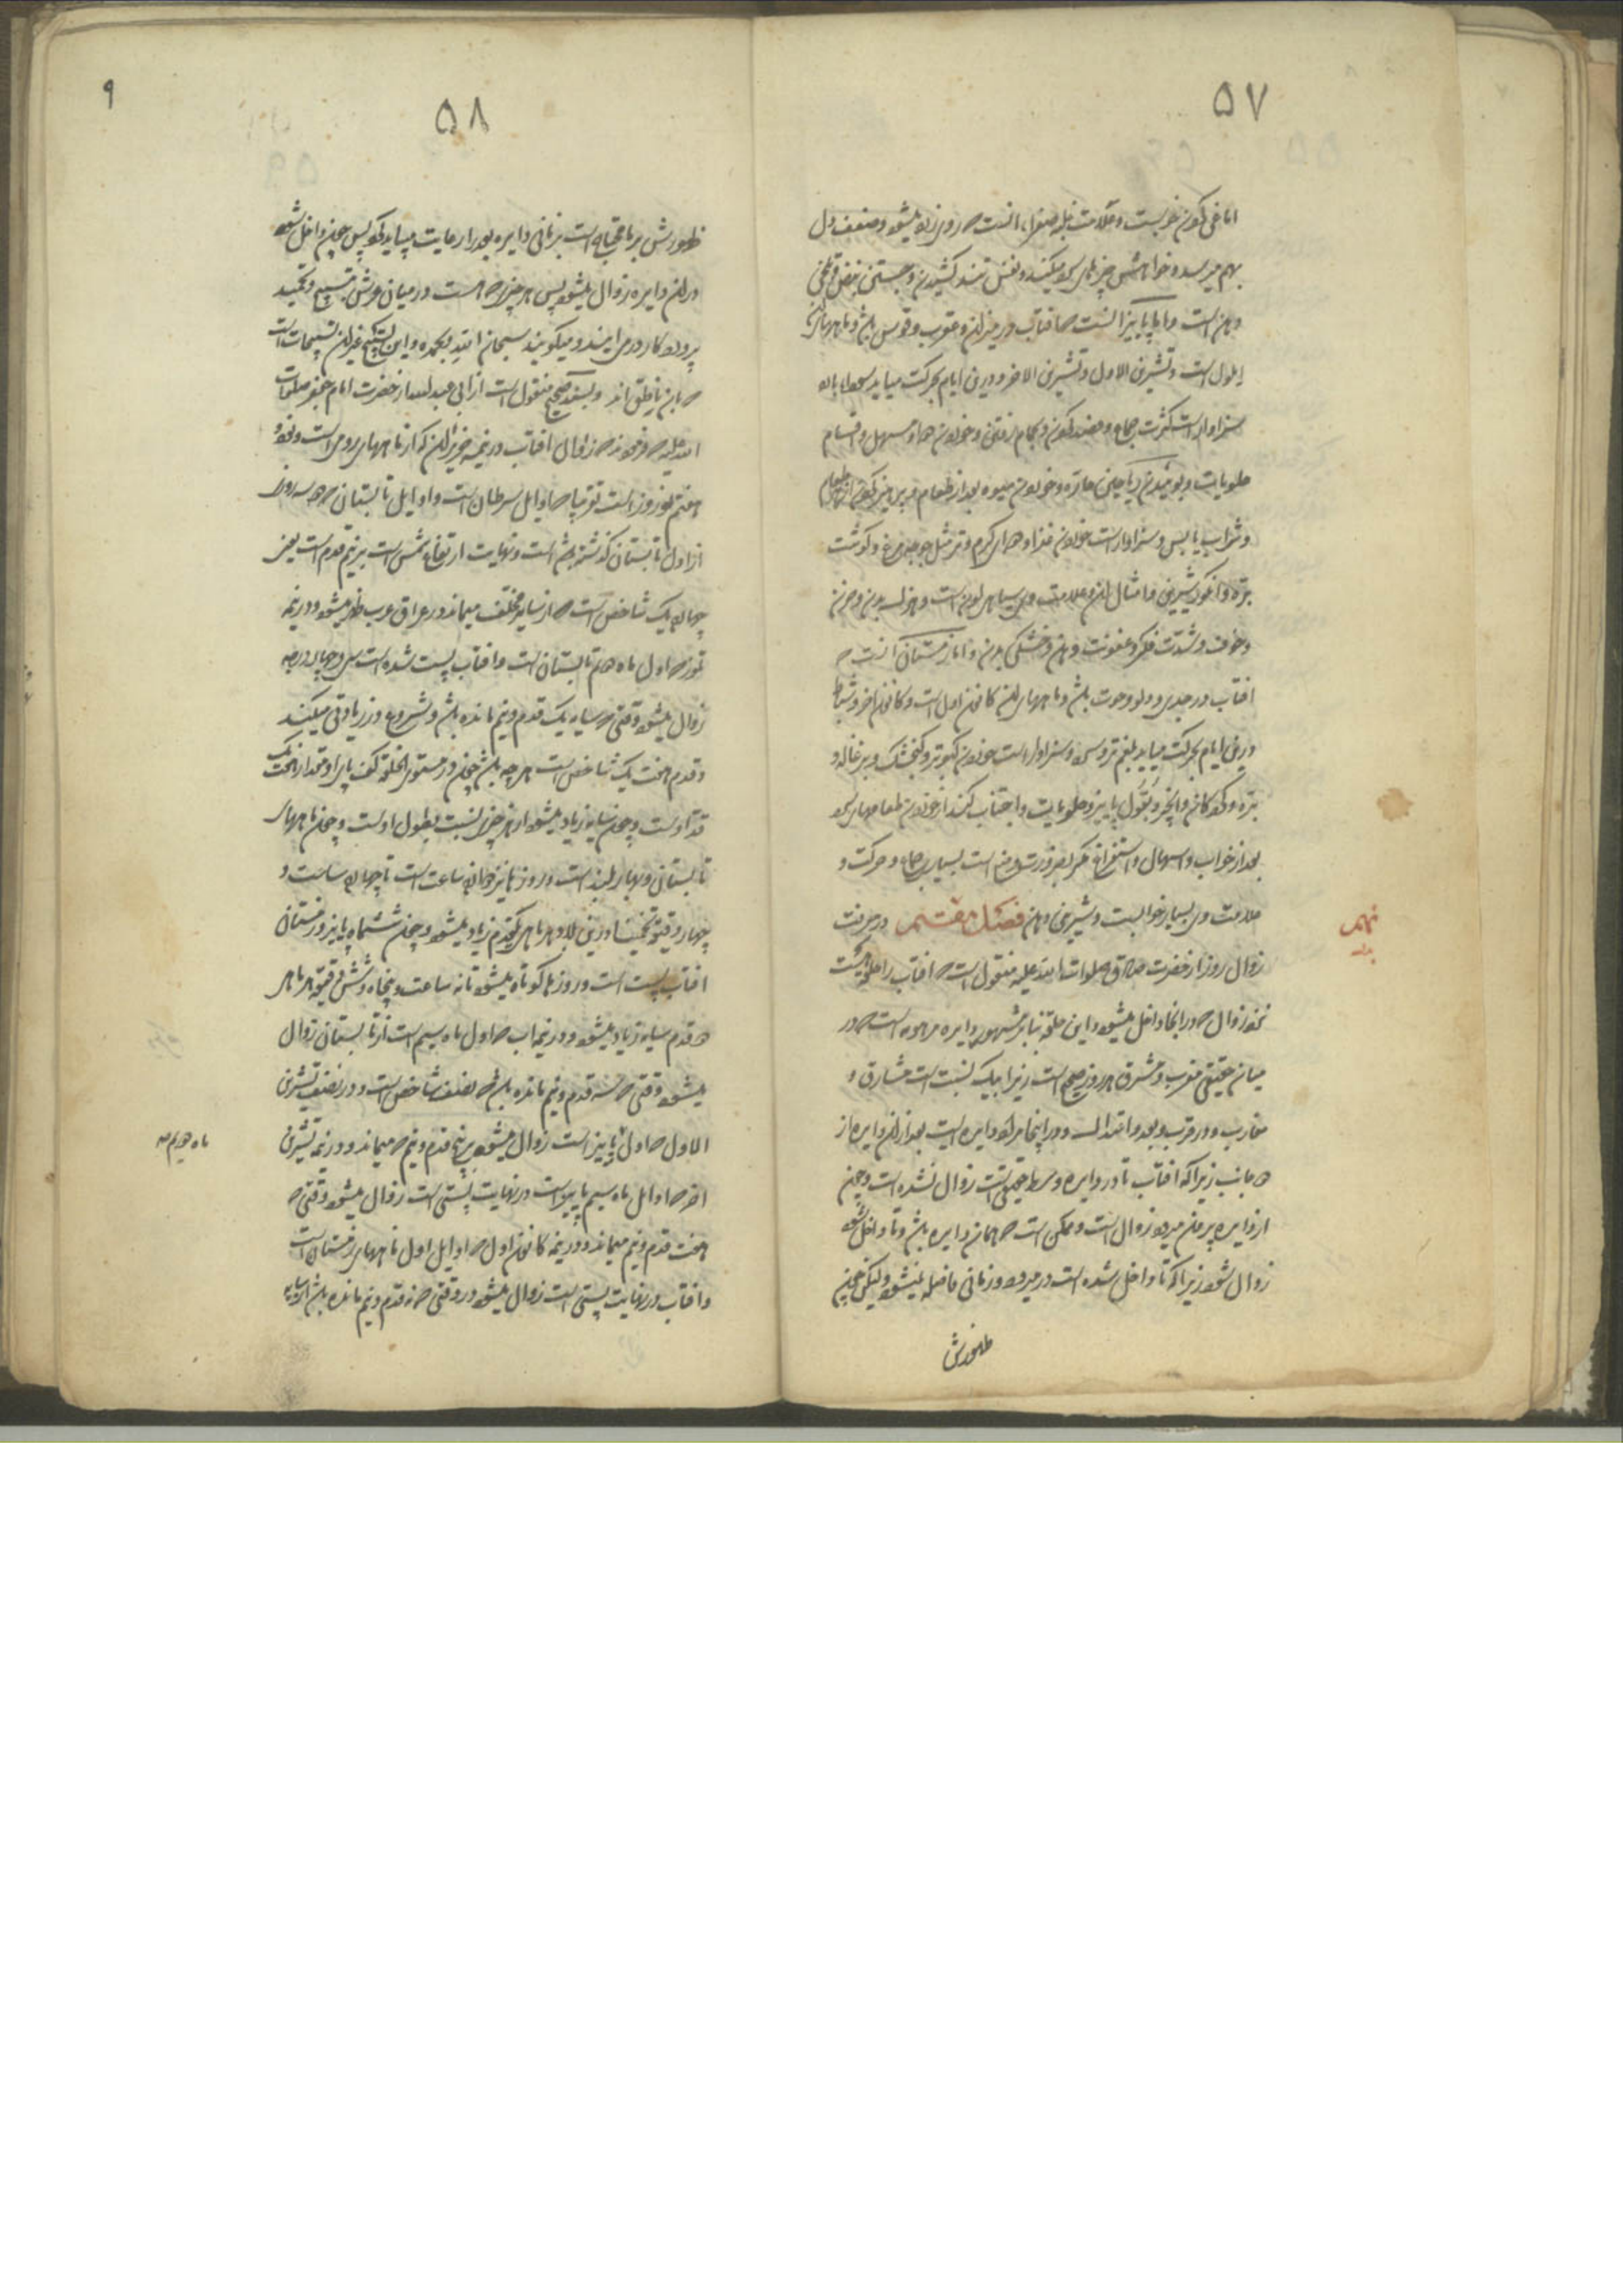 ۵۷
اما قی کردن خوبست و علامت غلبه صفرا، انست که روی زرد میشود و ضعف دل
بهم میرسد و خواهش چیزهای سرد میکند و نفس تند کشیدن و جستن نبض و تلخی
دهن است و اما پاییز انست که افتاب در میزان و عقرب و قوس باشد و ماههای ان
ایلول است و تشرین الاول و تشرین الاخر و درین ایام بحرکت میاید سودا باید
سزاوار است کثرت جماع و فصد کردن و بحمام رفتن و خوردن دوا مسهل و اقسام
حلویات و بوئیدن ریاحین حاره و خوردن میوه بعد از طعام و پرهیز کردن از طعام
و شراب یابس و سزاوار است خوردن غذاهای گرم و تر مثل جوجه مرغ و گوشت
بره و انگور شیرین و امثال ان و علامت وی سیاهی لون است و هزل بدن و حزن
و خوف و شدت فکر و عفونت دهن و خشکی بدن و اما زمستان انست که
افتاب در جدی و دلو و حوت باشد و ماههای ان کانون اول است و کانون اخر و شباط
درین ایام بحرکت میاید بلغم تر و سرد و سزاوار است خوردن کبوتر و گنجشک و بزغاله و
بره و گردکان و انجیر و بقول پاییز و حلویات و اجتناب کند از خوردن طعامهای سرد
بعد از خواب و اسهال و استفراغ مگر بضرورت و منع است بسیاری جماع و حرکت و
علامت وی بسیار خوابست و شیرینی دهن فصل هفتم در معرفت
زوال روز از حضرت صادق صلوات الله علیه منقول است که افتاب را حلقه ایست
نزد زوال که در انجا داخل میشود و این حلقه بنابر مشهور دایره موهومه است که در
میان حقیقی مغرب و مشرق هر روز صحیح است زیرا بیک نسبت است مشارق و
مغارب و در قرب و بعد و اعتدال و در اینجا مراد دایره ایست بعد از ان دایره از
دو جانب زیرا که افتاب تا در دایره وسط حقیقی است زوال نشده است و چون
از دایره بیرون میرود زوال است و ممکن است که همان دایره باشد و تا داخل شود
زوال شود زیرا که تا داخل شده است در میرود و زمانی فاصله نمیشود و لیکن چون
ظهورش
۵۸
۹
ظهورش بر ما محتاج است بزمانی دایره بعد را رعایت میباید کرد پس چون داخل شود
در ان دایره زوال میشود پس هر چیز که هست در میان عرش تسبیح و تحمید
پروردکار در می ایند و میگویند سبحان الله و بحمده و این تسبیح غیر ان تسبیحات است
که بان ناطق اند و بسند صحیح منقول است از ابی عبدالله از حضرت امام جعفر صلوات
الله علیه که فرمود که زوال افتاب در نیمه حزیران که از ماههای رومی است و نحو
هفتم نوروز است تقریبا که اوایل سرطان است و اوایل تابستان که دو سه روز
از اول تابستان گذشته باشد و نهایت ارتفاع شمس است بر نیم قدم است یعنی
چهارده یک شاخص است که از سایه مختلف میماند در عراق عرب ظهر میشود و در نیمه
تموز که اول ماه دوم تابستان است و افتاب پست شده است سی و چهار درجه
زوال میشود وقتی که سایه یک قدم و نیم مانده باشد و شروع در زیادتی میکند
و قدم هفت یک شاخص است هر چه باشد چون در مستوی الخلقه کف پای او مقدار هفت یک
قد اوست و چون سایه زیاد میشود از هر چیزی نسبت بطول اوست و چون ماههای
تابستان و بهار بلند است و روزها نیز چهارده ساعت است تا چهارده ساعت و
چهار دقیقه تخمینا درین بلاد و هر ماهی یکقدم زیاد میشود و چون ششماه پاییز و زمستان
افتاب پست است و روزها کوتاه میشود تا نه ساعت و پنجاه و شش دقیقه هر ماهی
دو قدم سایه زیاد میشود و در نیمه اب که اول ماه سیم است از تابستان زوال
میشود وقتی که سه قدم و نیم مانده باشد که نصف شاخص است و در نصف تشرین
الاول که اول پاییز است زوال میشود بر پنج قدم و نیم که میماند و در نیمه تشرین
اخر که اوایل ماه سیم پاییز است و در نهایت پستی است زوال میشود وقتی که
هفت قدم و نیم میماند و در نیمه کانون اول که اوایل اول ماههای زمستان است
و افتاب در نهایت پستی است زوال میشود در وقتی که نه قدم و نیم مانده باشد از سایه